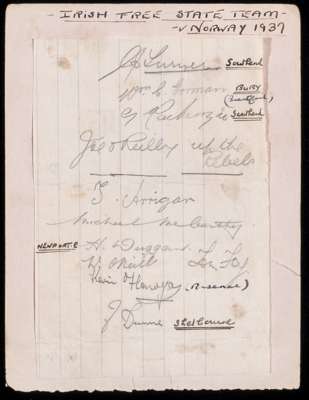 - IRISH FREE STATE TEAM -
- v NORWAY 1937
C Turner Southend
Wm G Gorman BURY
(Brentford)
G Mackenzie Southend
Joe O'Reilly up the
Rebels
T. Arrigan
Michael McCarthy
NEWPORT C H. Duggan
W O'Neill
Kevin O'Flanagan (Arsenal)
J Dunne Shelbourne